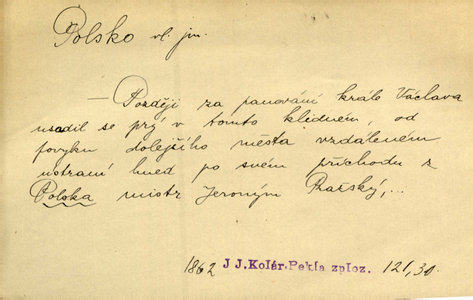 Polsko vl. jm.
— Později za panování krále Václava
usadil se prý v tomto klidném, od
povyku dolejšího města vzdáleném
ústraní hned po svém příchodu z
Polska mistr Jeroným Pražský,...
1862 J J.Kolár-Pekla zploz. 121,30.